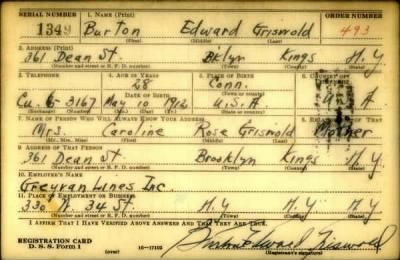 SERIAL NUMBER 1. NAME (Print) ORDER NUMBER
1349 Burton Edward Griswold 493
(First) (Middle) (Last)
2. ADDRESS (Print)
361 Dean St. Bklyn Kings N.Y.
(Number and street or R. F. D. number) (Town) (County) (State)
3. TELEPHONE 4. AGE IN YEARS 5. PLACE OF BIRTH 6. COUNTRY OF
28 Conn.
DATE OF BIRTH
Cu. 6-3167 May 10 1912 U.S.A
(Exchange) (Number) (Mo.) (Day) (Yr.) (State or country)
7. NAME OF PERSON WHO WILL ALWAYS KNOW YOUR ADDRESS 8. RELATIONSHIP OF THAT PERSON
Mrs. Caroline Rose Griswold Mother
(Mr., Mrs., Miss) (First) (Middle) (Last)
9. ADDRESS OF THAT PERSON
361 Dean St. Brooklyn Kings N.Y.
(Number and street or R. F. D. number) (Town) (County) (State)
10. EMPLOYER'S NAME
Greyvan Lines Inc.
11. PLACE OF EMPLOYMENT OR BUSINESS
330 W. 34 St. N.Y N.Y. N.Y
(Number and street or R. F. D. number) (Town) (County) (State)
I AFFIRM THAT I HAVE VERIFIED ABOVE ANSWERS AND THAT THEY ARE TRUE.
REGISTRATION CARD
D. S. S. Form 1 (over) 16-17105 Burton Edward Griswold
(Registrant's signature)